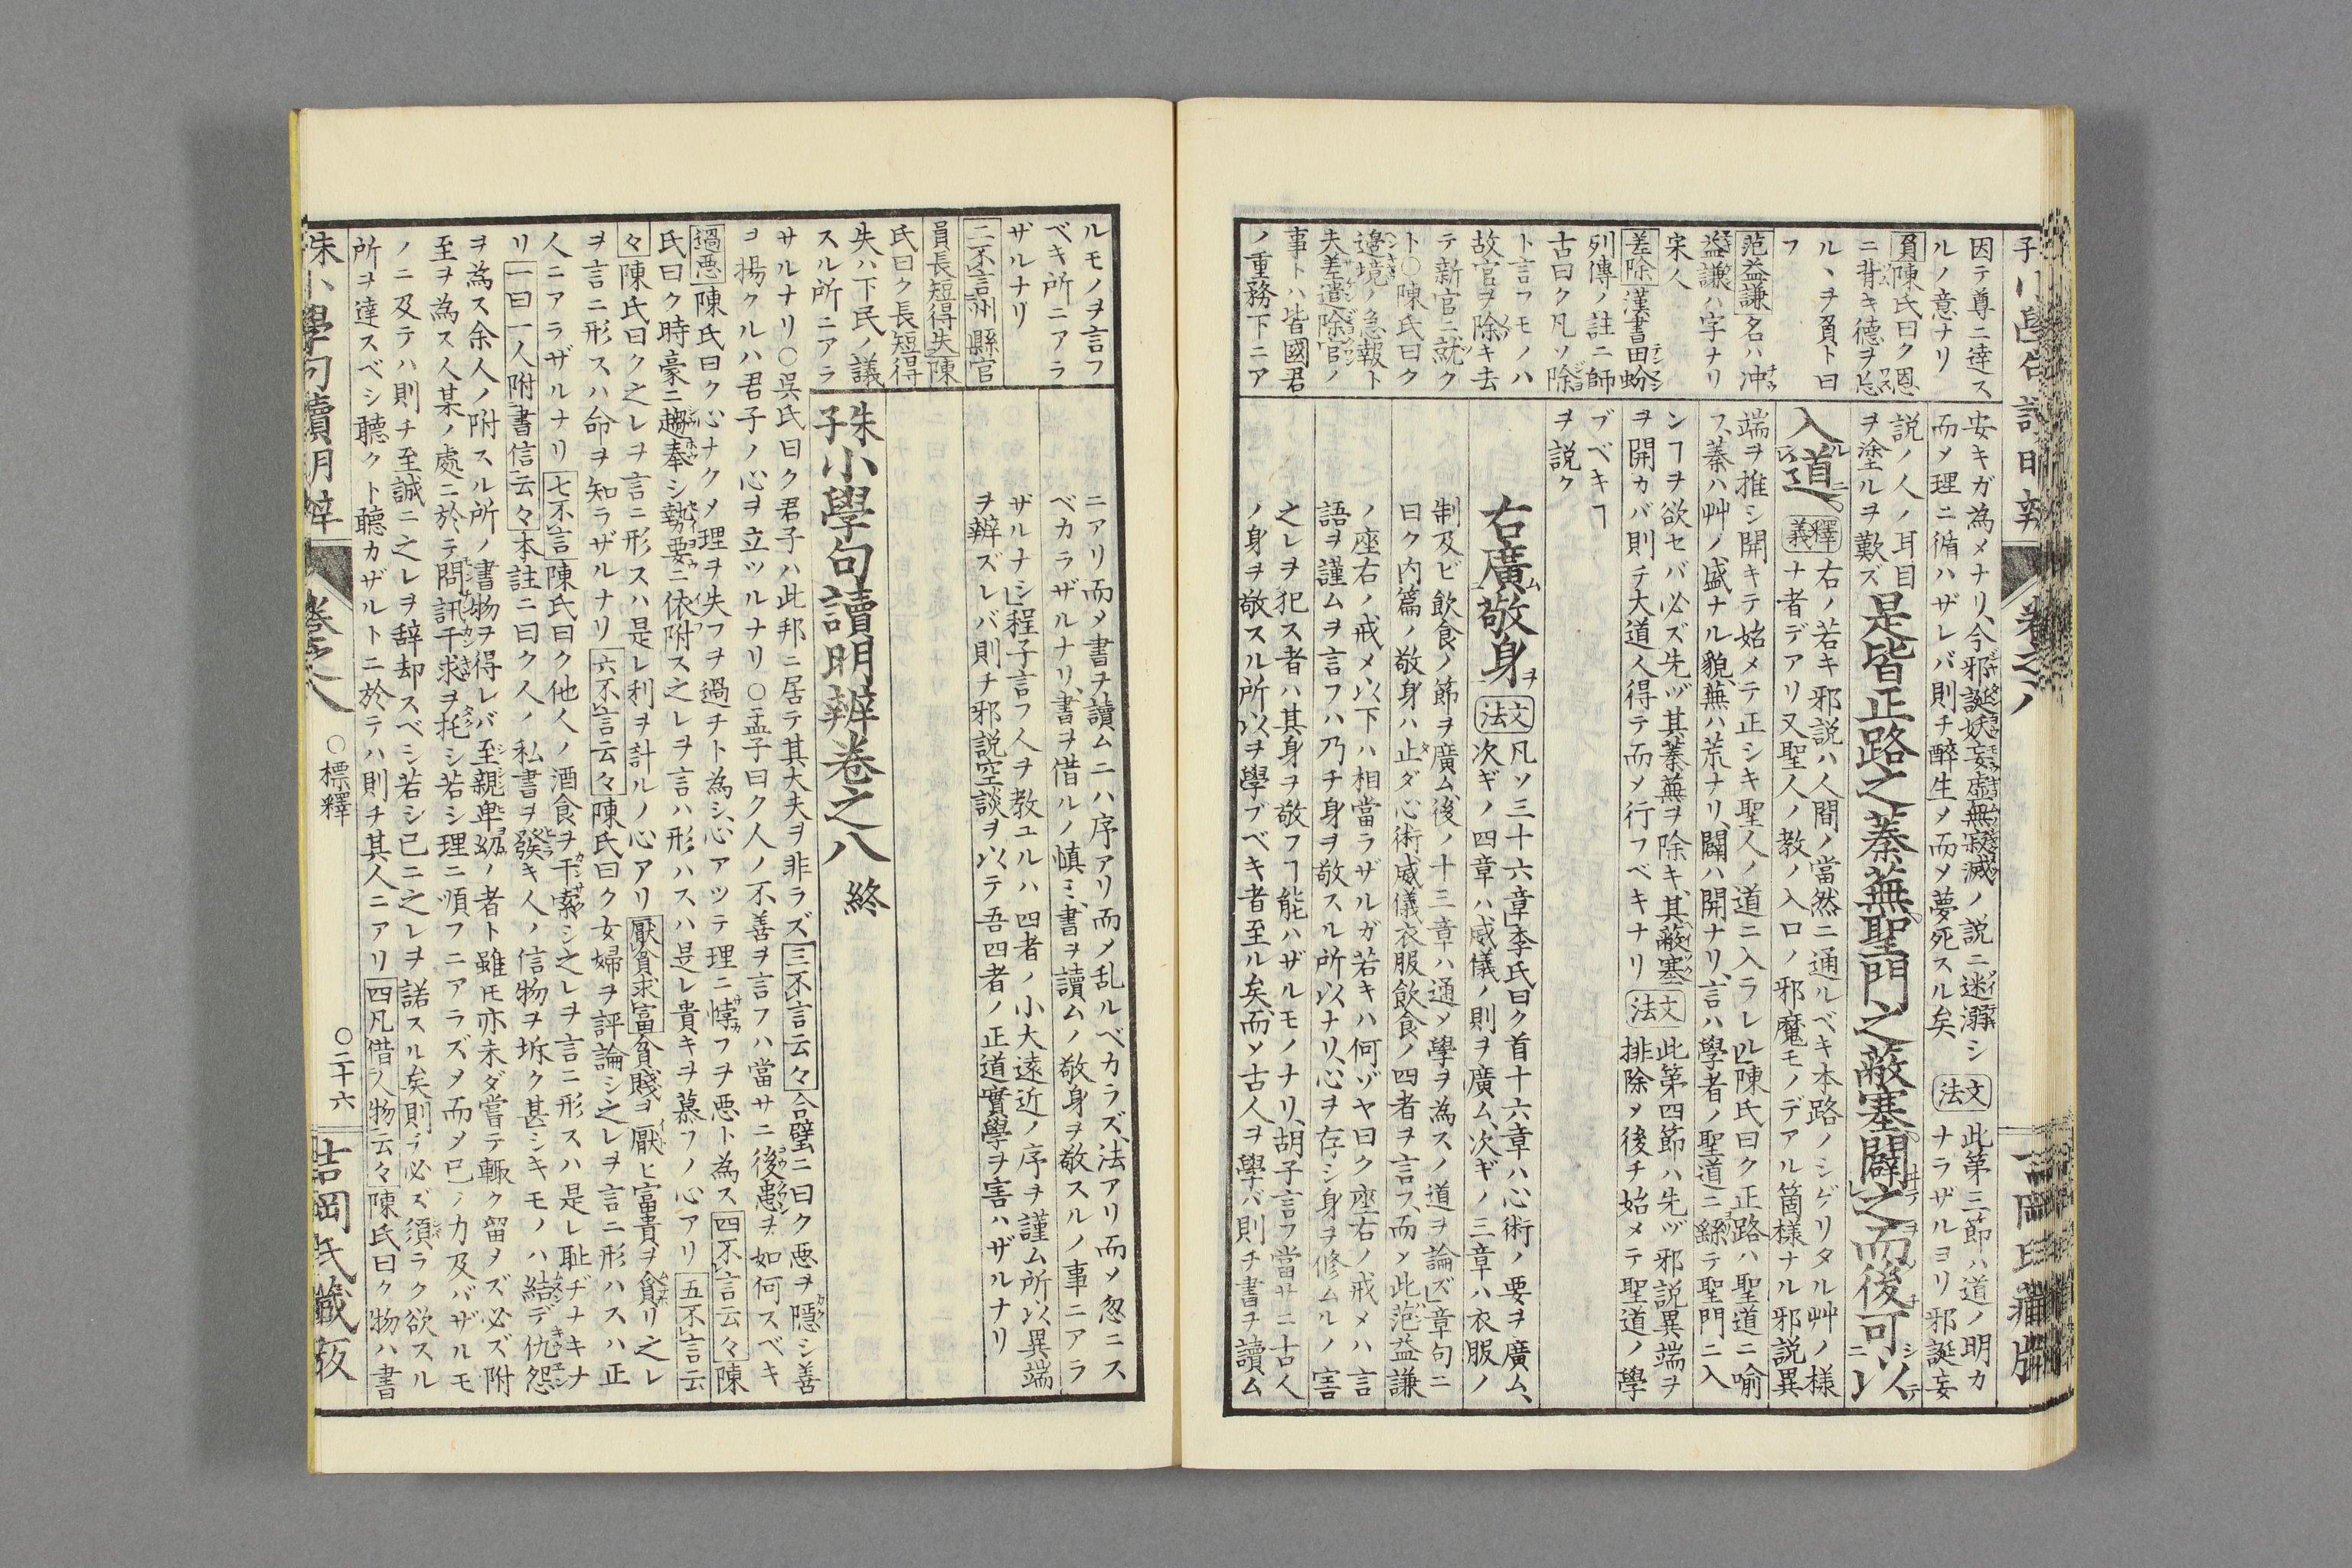 因テ尊ニ達ス
ルノ意ナリ
負陳氏曰ク恩
ニ背キ德ヲ忘
ル丶ヲ負ト曰
フ
范益謙名ハ冲
益謙ハ字ナリ
宋人
差除漢書田蚡
列傳ノ註ニ師
古曰ク凡ソ除
ト言フモノハ
故官ヲ除キ去
テ新官ニ就ク
ト○陳氏曰ク
邊境ノ急報ト
夫差遣除官ノ
事トハ皆國君
ノ重務下ニア
安キガ為メナリ、今邪誕妖妄虚無寂滅ノ説ニ迷溺シ
而メ理ニ循ハザレバ則チ醉生メ而メ夢死スル矣
文法
此第三節ハ道ノ明カ
ナラザルヨリ邪誕妄
説ノ人ノ耳目
ヲ塗ルヲ歎ズ
是皆正路之蓁蕪聖門之蔽塞闢之而後可以
入道
釋義
右ノ若キ邪説ハ人間ノ當然ニ通ルベキ本路ノシゲリタル艸ノ様
ナ者デアリ又聖人ノ教ノ入口ノ邪魔モノデアル箇様ナル邪説異
端ヲ推シ開キテ始メテ正シキ聖人ノ道ニ入ラレル陳氏曰ク正路ハ聖道ニ喻
フ、蓁ハ艸ノ盛ナル貌、蕪ハ荒ナリ、闢ハ開ナリ、言ハ學者ノ聖道ニ繇テ聖門ニ入
ンヿヲ欲セバ必ズ先ヅ其蓁蕪ヲ除キ、其蔽塞
ヲ開カバ則チ大道人得テ而メ行フベキナリ
文法
此第四節ハ先ヅ邪説異端ヲ
排除メ後チ始メテ聖道ノ學
ブベキヿ
ヲ説ク
右廣敬身
文法
凡ソ三十六章李氏曰ク首十六章ハ心術ノ要ヲ廣ム、
次ギノ四章ハ威儀ノ則ヲ廣ム、次ギノ三章ハ衣服ノ
制及ビ飲食ノ節ヲ廣ム、後ノ十三章ハ通メ學ヲ為スノ道ヲ論ズ章句ニ
曰ク内篇ノ敬身ハ止ダ心術威儀衣服飲食ノ四者ヲ言フ、而メ此范益謙
ノ座右ノ戒メ以下ハ相當ラザルガ若キハ何ゾヤ曰ク座右ノ戒メハ言
語ヲ謹ムヲ言フハ乃チ身ヲ敬スル所以ナリ、心ヲ存シ身ヲ修ムルノ害
之レヲ犯ス者ハ其身ヲ敬フヿ能ハザルモノナリ、胡子言フ當サニ古人
ノ身ヲ敬スル所以ヲ學ブベキ者至ル矣、而メ古人ヲ學バ則チ書ヲ讀ム
ルモノヲ言フ
ベキ所ニアラ
ザルナリ
二不言州縣官
員長短得失陳
氏曰ク長短得
失ハ下民ノ議
スル所ニアラ
ニアリ而メ書ヲ讀ムニハ序アリ而メ乱ルベカラズ、法アリ而メ忽ニス
ベカラザルナリ、書ヲ借ルノ慎ミ、書ヲ讀ムノ敬身ヲ敬スルノ事ニアラ
ザルナシ程子言フ人ヲ教ユルハ四者ノ小大遠近ノ序ヲ謹ム所以異端
ヲ辨ズレバ則チ邪説空談ヲ以テ吾四者ノ正道實學ヲ害ハザルナリ
朱子小學句讀明辨卷之八終
サルナリ○呉氏曰ク君子ハ此邦ニ居テ其大夫ヲ非ラズ三不言云々合璧ニ曰ク悪ヲ隱シ善
ヲ揚クルハ君子ノ心ヲ立ツルナリ○孟子曰ク人ノ不善ヲ言フハ當サニ後患ヲ如何スベキ
過悪陳氏曰ク心ナクメ理ヲ失フヲ過チト為シ、心アツテ理ニ悖フヲ悪ト為ス四不言云々陳
氏曰ク時豪ニ趨奉シ勢要ニ依附ス之レヲ言ハ形ハスハ是レ貴キヲ慕フノ心アリ五不言云
々陳氏曰ク之レヲ言ニ形スハ是レ利ヲ計ルノ心アリ厭貧求富貧賤ヲ厭ヒ富貴ヲ貪リ之レ
ヲ言ニ形スハ命ヲ知ラザルナリ六不言云々陳氏曰ク女婦ヲ評論シ之レヲ言ニ形ハスハ正
人ニアラザルナリ七不言陳氏曰ク他人ノ酒食ヲ干索シ之レヲ言ニ形スハ是レ耻ヂナキナ
リ一曰一人附書信云々本註ニ曰ク人ノ私書ヲ發キ人ノ信物ヲ坼ク甚シキモノハ結デ仇怨
ヲ為ス余人ノ附スル所ノ書物ヲ得レバ至親卑幼ノ者ト雖モ亦未ダ嘗テ輙ク留メズ必ズ附
至ヲ為ス人某ノ處ニ於テ問訊干求ヲ托シ若シ理ニ順フニアラズメ而メ已ノ力及バザルモ
ノニ及テハ則チ至誠ニ之レヲ辞却スベシ若シ已ニ之レヲ諾スル矣則デ必ズ須ラク欲スル
所ヲ達スベシ聽クト聽カザルトニ於テハ則チ其人ニアリ四凡借人物云々陳氏曰ク物ハ書
朱小學句讀明辨
卷之八
○標釋
○二十六
吉岡氏藏板